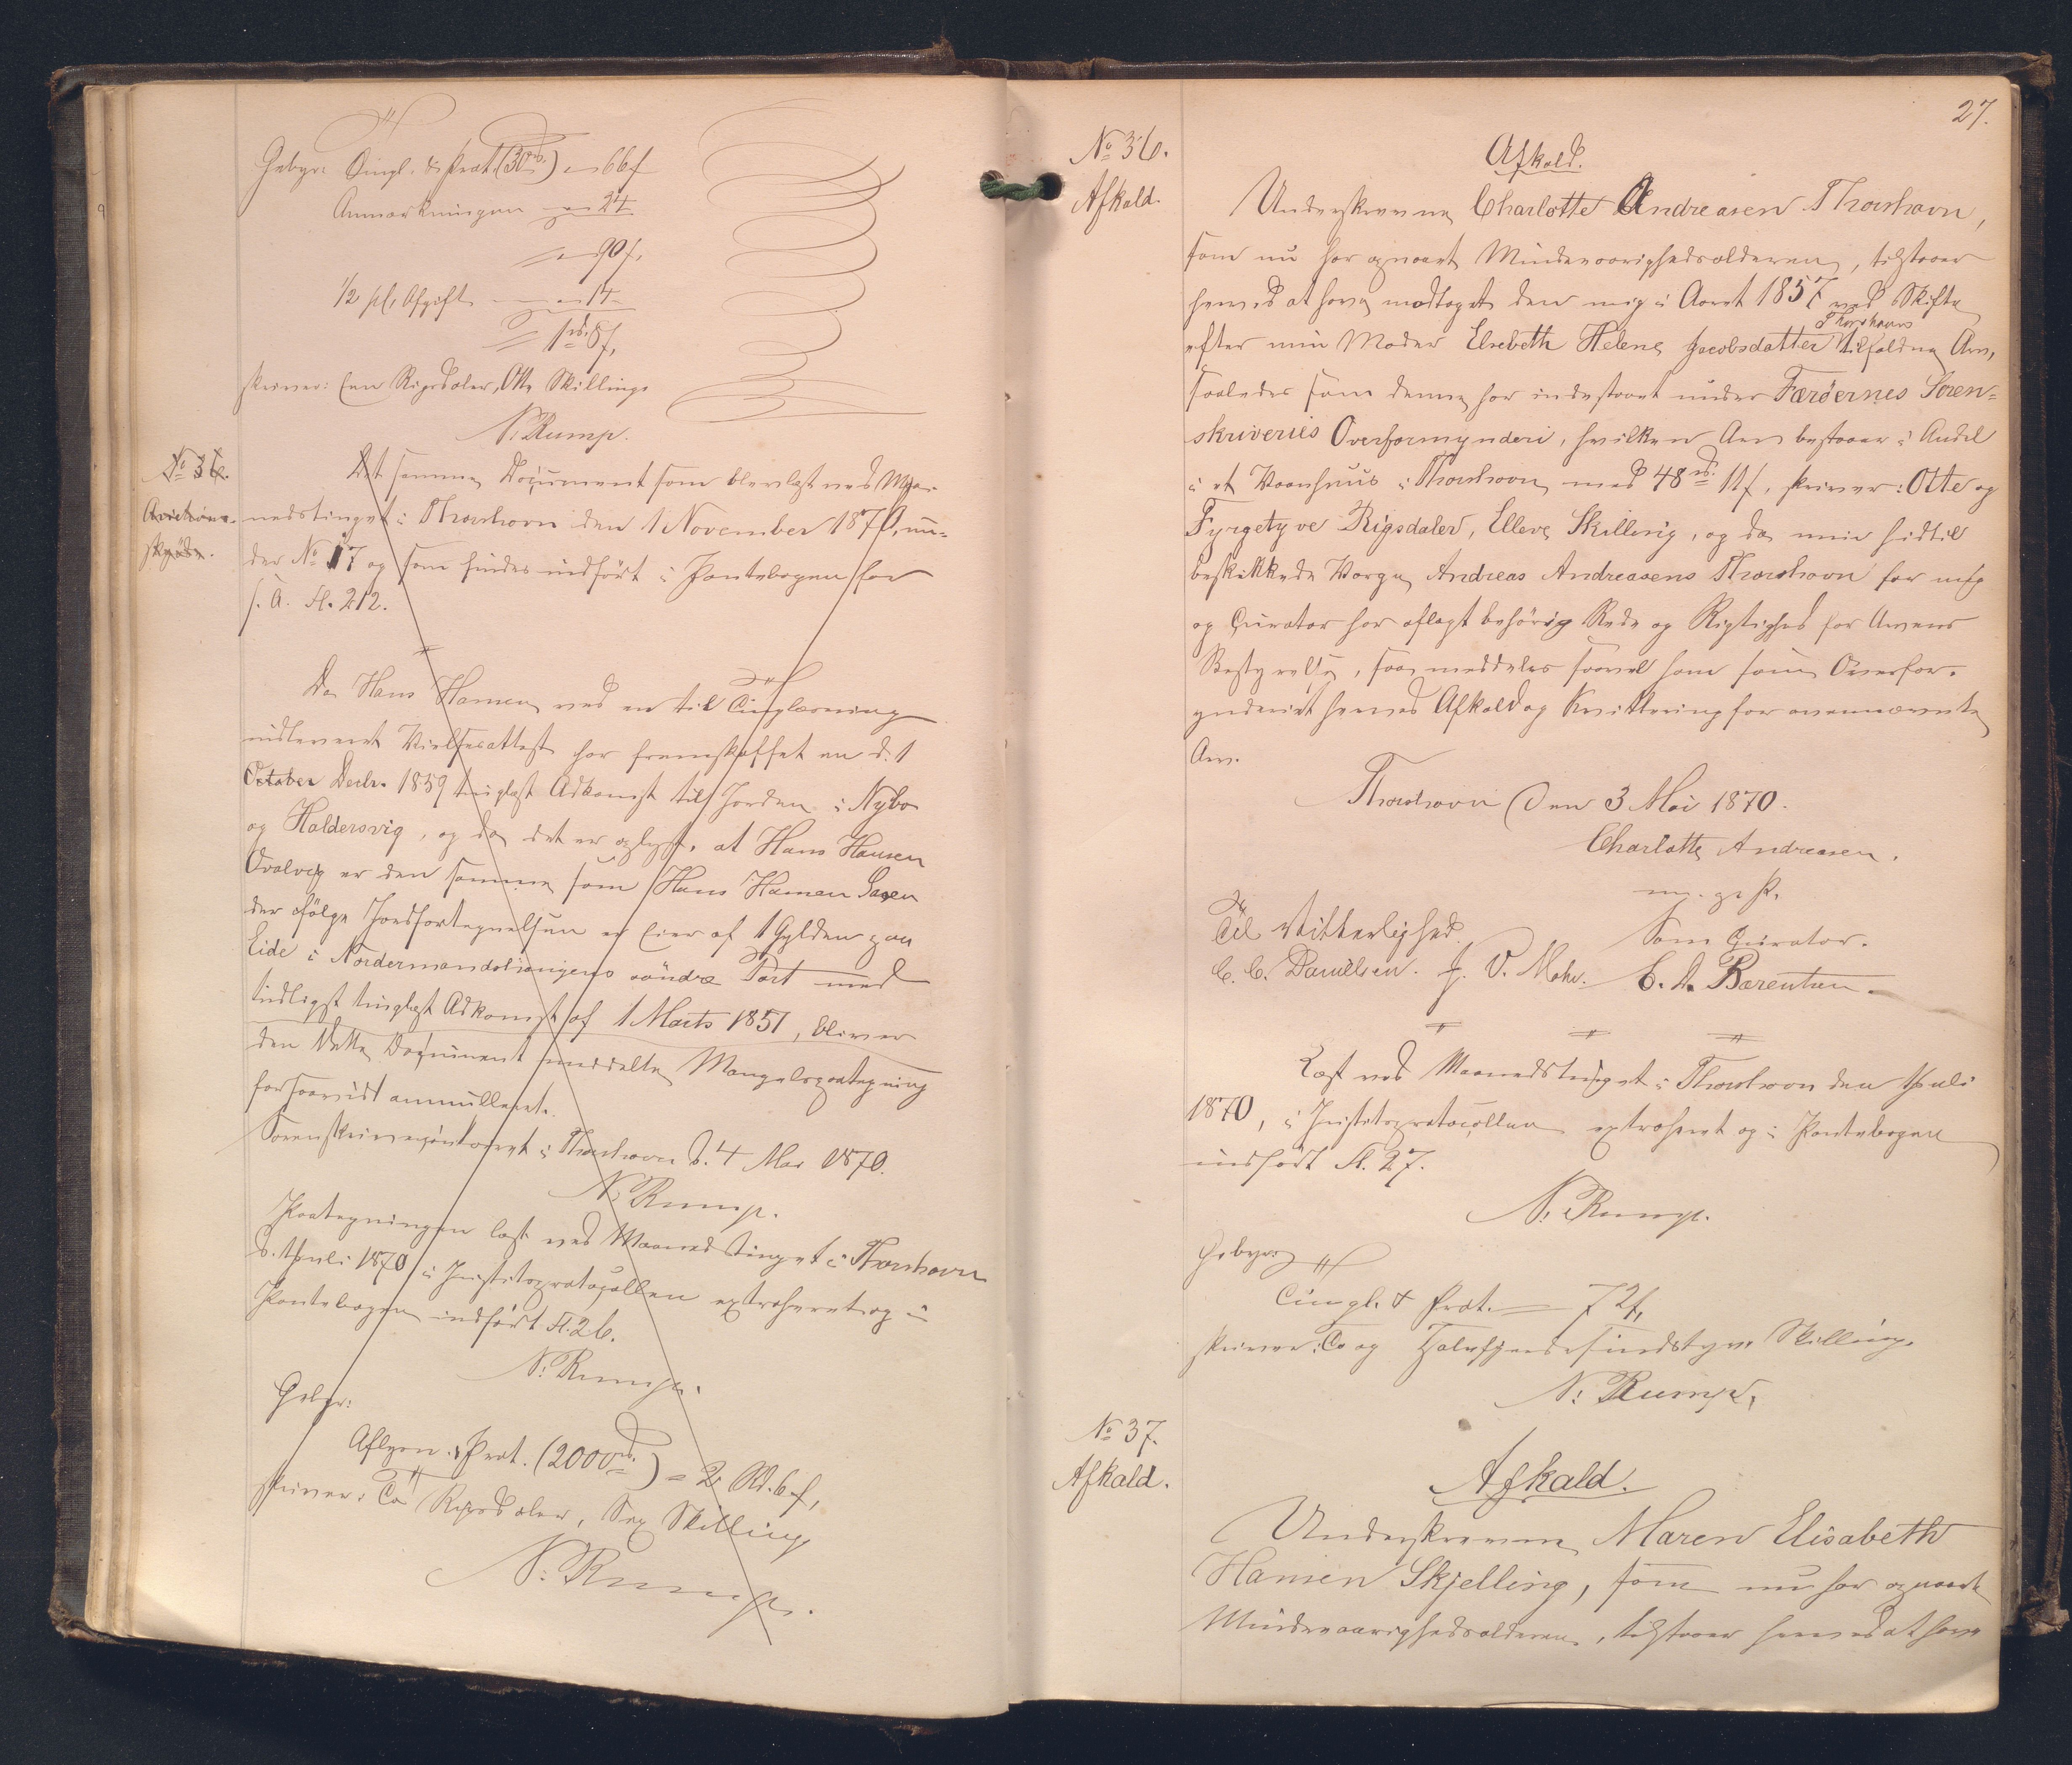 Gebyr: Tingl. & Prot. (30 rd.) = 66 f
Anmærkningen = 24
= 90 f,
1/2 pCt. Afgift = 14
= 1 rd. 8 f,
skriver: Een Rigsdaler, Otte Skilling.
N. Rump.
No 36.
Auctions-
skjøde.
Det samme Document som blev læst ved Maa-
nedstinget i Thorshavn den 1 November 1870, un-
der No 17 og som findes indført i Pantebogen for
s. A. fl. 212.
Da Hans Hansen ved en til Tinglæsning
indleveret Vielsesattest har fremskaffet en d. 1
October Decbr. 1859 tinglæst Adkomst til Jorden i Nybo
og Haldersvig, og da det er oplyst, at Hans Hansen
Qvalvig er den samme som Hans Hansen Saxen
der ifølge Jordfortegnelsen er Eier af 1 Gylden paa
Eide i Nordermandslioningens søndre Part med
lydligst tinglæst Adkomst af 1 Marts 1851, bliver
den dette Document meddelte Mangelspaategning
forsaavidt annulleret.
Sorenskrivercontoret i Thorshavn d. 4 Mai 1870.
N. Rump.
Paategningen læst ved Maanedstinget i Thorshavn
d. 1 Juli 1870, i Justitsprotocollen extraheret og i
Pantebogen indført fl. 26.
N. Rump.
Gebyr:
Aflysn. & Prot. (2000 rd.) = 2 Rd. 6 f,
skriver: To Rigsdaler, Sex Skilling
N. Rump.
27.
No 36.
Afkald.
Afkald.
Underskrevne Charlotte Andreasen Thorshavn,
som nu har opnaaet Mindreaarighedsalderen, tilstaaer
herved at have modtaget den mig i Aaret 1857 ved Skifte
Thorshavn
efter min Moder Elsebeth Helene Jacobsdatter tilfaldne Arv,
saaledes som denne har indestaaet under Færøernes Soren-
skriveries Overformynderi, hvilken Arv bestaaer i Andel
i et Vaanhuus i Thorshavn med 48 rd. 11 f, skriver: Otte og
Fyrgetyve Rigsdaler, Elleve Skilling, og da min hidtil
beskikkede Værge Andreas Andreasens Thorshavn for mig
og Curator har aflagt behörig Rede og Rigtighed for Arvens
Bestyrelse, saa meddeles saavel ham som Overfor-
mynderiet herved Afkald og Kvittering for ovennævnte
Arv.
Thorshavn den 3 Mai 1870.
Charlotte Andreasen.
m. p. P.
Til Vitterlighed.
Som Curator.
C. C. Danielsen. J. V. Mohr. C. A. Bærentsen.
Læst ved Maanedstinget i Thorshavn den 1 Juli
1870, i Justitsprotocollen extraheret og i Pantebogen
indført fl. 27.
N. Rump.
Gebyr:
Tingl. & Prot. = 72 f,
skriver: To og Halvfjerdesindstyve Skilling.
N. Rump,
No 37.
Afkald.
Afkald.
Underskrevne Maren Elisabeth
Hansen Skjelling, som nu har opnaaet
Mindreaarighedsalderen, tilstaaer herved at have